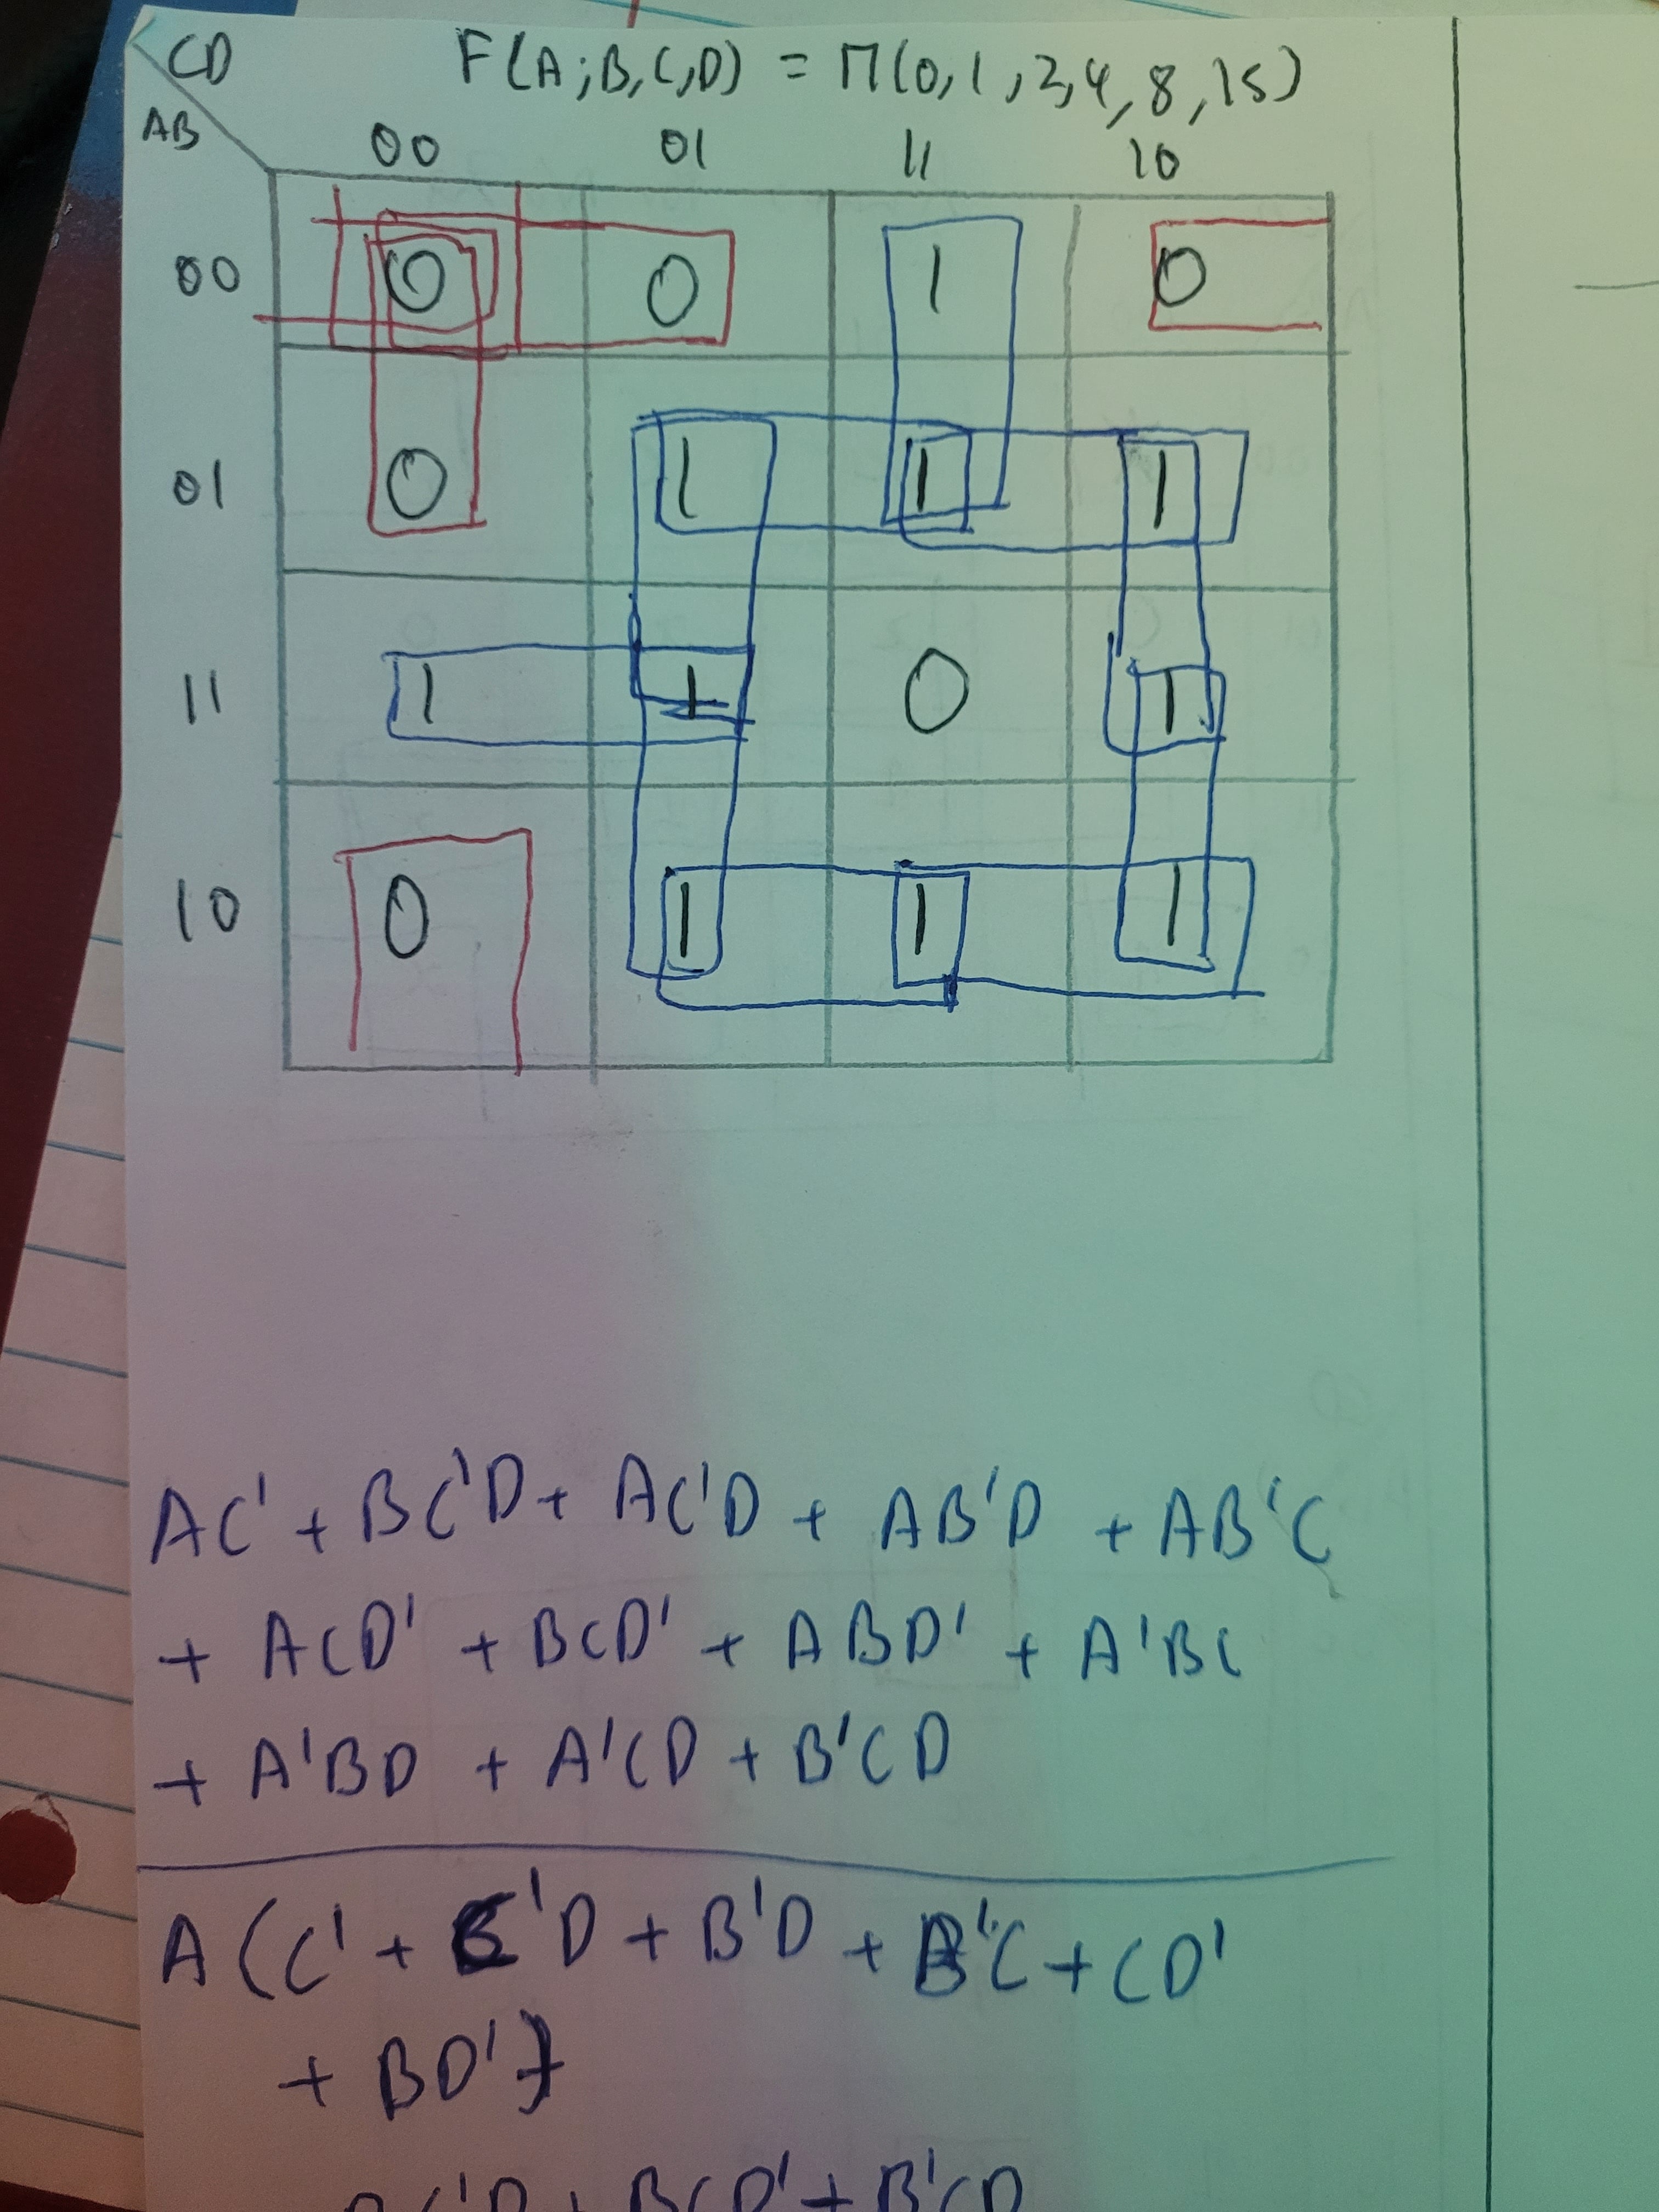 CD F(A;B,C,D) = Π(0,1,2,4,8,15)
AB 00 01 11 10
00 0 0 1 0
01 0 1 1 1
11 1 1 0 1
10 0 1 1 1
AC' + BC'D + AC'D + AB'D + AB'C
+ ACD' + BCD' + ABD' + A'BC
+ A'BD + A'CD + B'CD
A(C' + C'D + B'D + B'C + CD'
+ BD')
BC'D + BCD' + B'CD